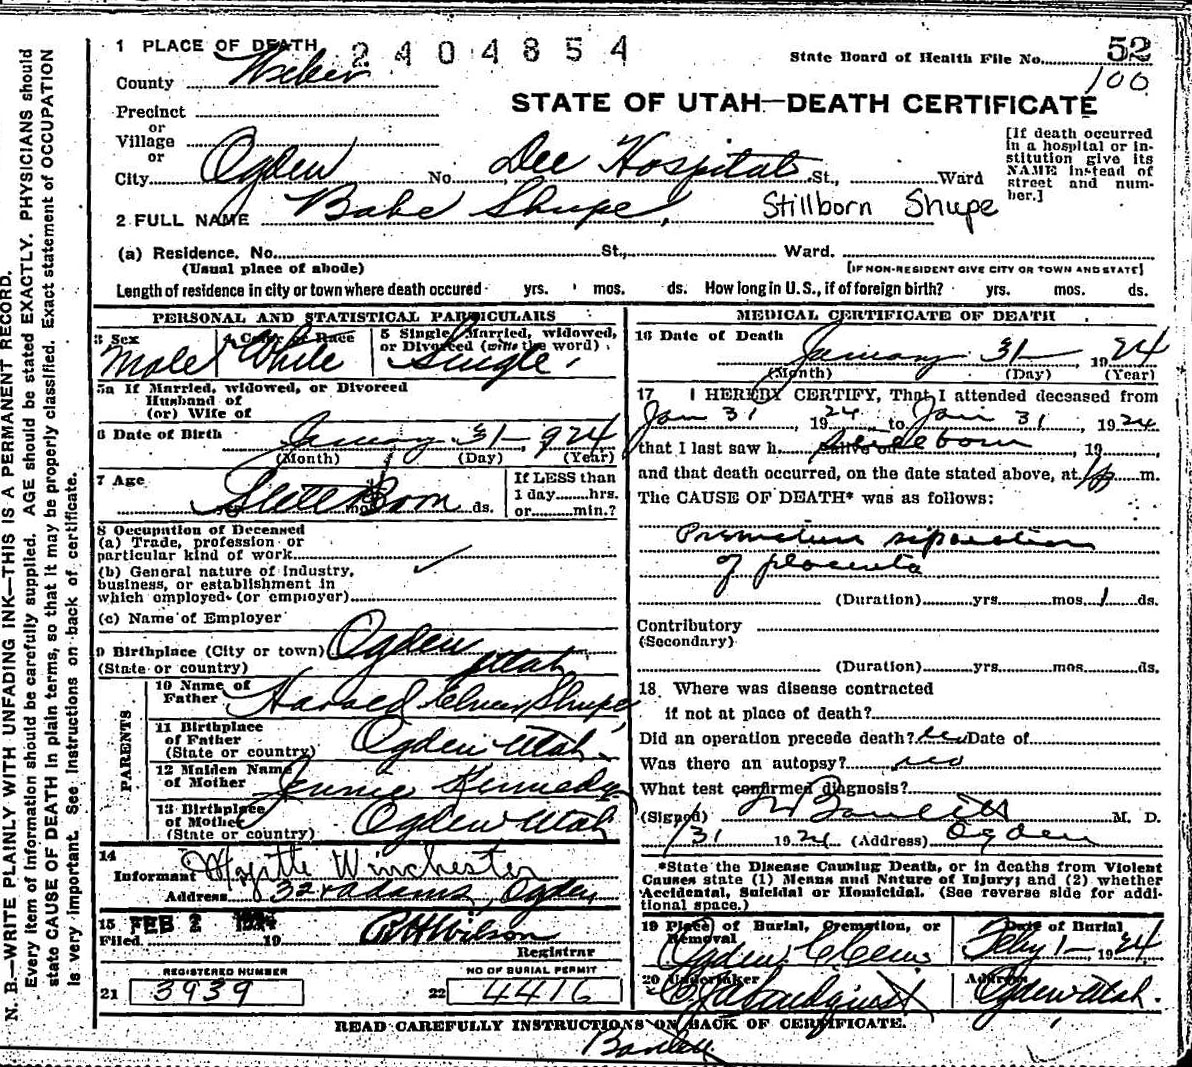 1 PLACE OF DEATH 2404854
State Board of Health File No. 52
100
County Weber
STATE OF UTAH—DEATH CERTIFICATE
Precinct
or
Village
or
City Ogden No. Dee Hospital St., Ward
[If death occurred in a hospital or institution give its NAME instead of street and number.]
2 FULL NAME Babe Shupe, Stillborn Shupe
(a) Residence. No. St., Ward.
(Usual place of abode) [IF NON-RESIDENT GIVE CITY OR TOWN AND STATE]
Length of residence in city or town where death occured yrs. mos. ds. How long in U. S., if of foreign birth? yrs. mos. ds.
PERSONAL AND STATISTICAL PARTICULARS
3 Sex 4 Color or Race 5 Single, Married, widowed, or Divorced (write the word)
Male White Single
5a If Married, widowed, or Divorced
Husband of
(or) Wife of
6 Date of Birth January 31— 924
(Month) (Day) (Year)
7 Age Still Born ds. If LESS than
1 day hrs.
or min.?
8 Occupation of Deceased
(a) Trade, profession or
particular kind of work
(b) General nature of industry,
business, or establishment in
which employed (or employer)
(c) Name of Employer
9 Birthplace (City or town) Ogden
(State or country) Utah
PARENTS
10 Name of Father Harold Elmer Shupe
11 Birthplace of Father (State or country) Ogden Utah
12 Maiden Name of Mother Jennie Kennedy
13 Birthplace of Mother (State or country) Ogden Utah
14
Informant Myrtle Winchester
Address Adams, Ogden
15 FEB 2 1924
Filed 19 Wilson
Registrar
REGISTERED NUMBER NO OF BURIAL PERMIT
21 3939 22 4416
MEDICAL CERTIFICATE OF DEATH
16 Date of Death January 31— 1924
(Month) (Day) (Year)
17 I HEREBY CERTIFY, That I attended deceased from
Jan 31, 1924 to Jan 31, 1924
that I last saw h alive on Stillborn, 19
and that death occurred, on the date stated above, at m.
The CAUSE OF DEATH* was as follows:
Premature separation
of placenta
(Duration) yrs mos 1 ds.
Contributory
(Secondary)
(Duration) yrs mos ds.
18. Where was disease contracted
if not at place of death?
Did an operation precede death? no Date of
Was there an autopsy? no
What test confirmed diagnosis?
(Signed) M. D.
1/31 1924 (Address) Ogden
*State the Disease Causing Death, or in deaths from Violent
Causes state (1) Means and Nature of Injury; and (2) whether
Accidental, Suicidal or Homicidal. (See reverse side for addi-
tional space.)
19 Place of Burial, Cremation, or Removal Date of Burial
Ogden Feby 1— 1924
20 Undertaker Address
Ogden Utah.
READ CAREFULLY INSTRUCTIONS ON BACK OF CERTIFICATE.
N. B.—WRITE PLAINLY WITH UNFADING INK—THIS IS A PERMANENT RECORD.
Every item of information should be carefully supplied. AGE should be stated EXACTLY. PHYSICIANS should
state CAUSE OF DEATH in plain terms, so that it may be properly classified. Exact statement of OCCUPATION
is very important. See instructions on back of certificate.